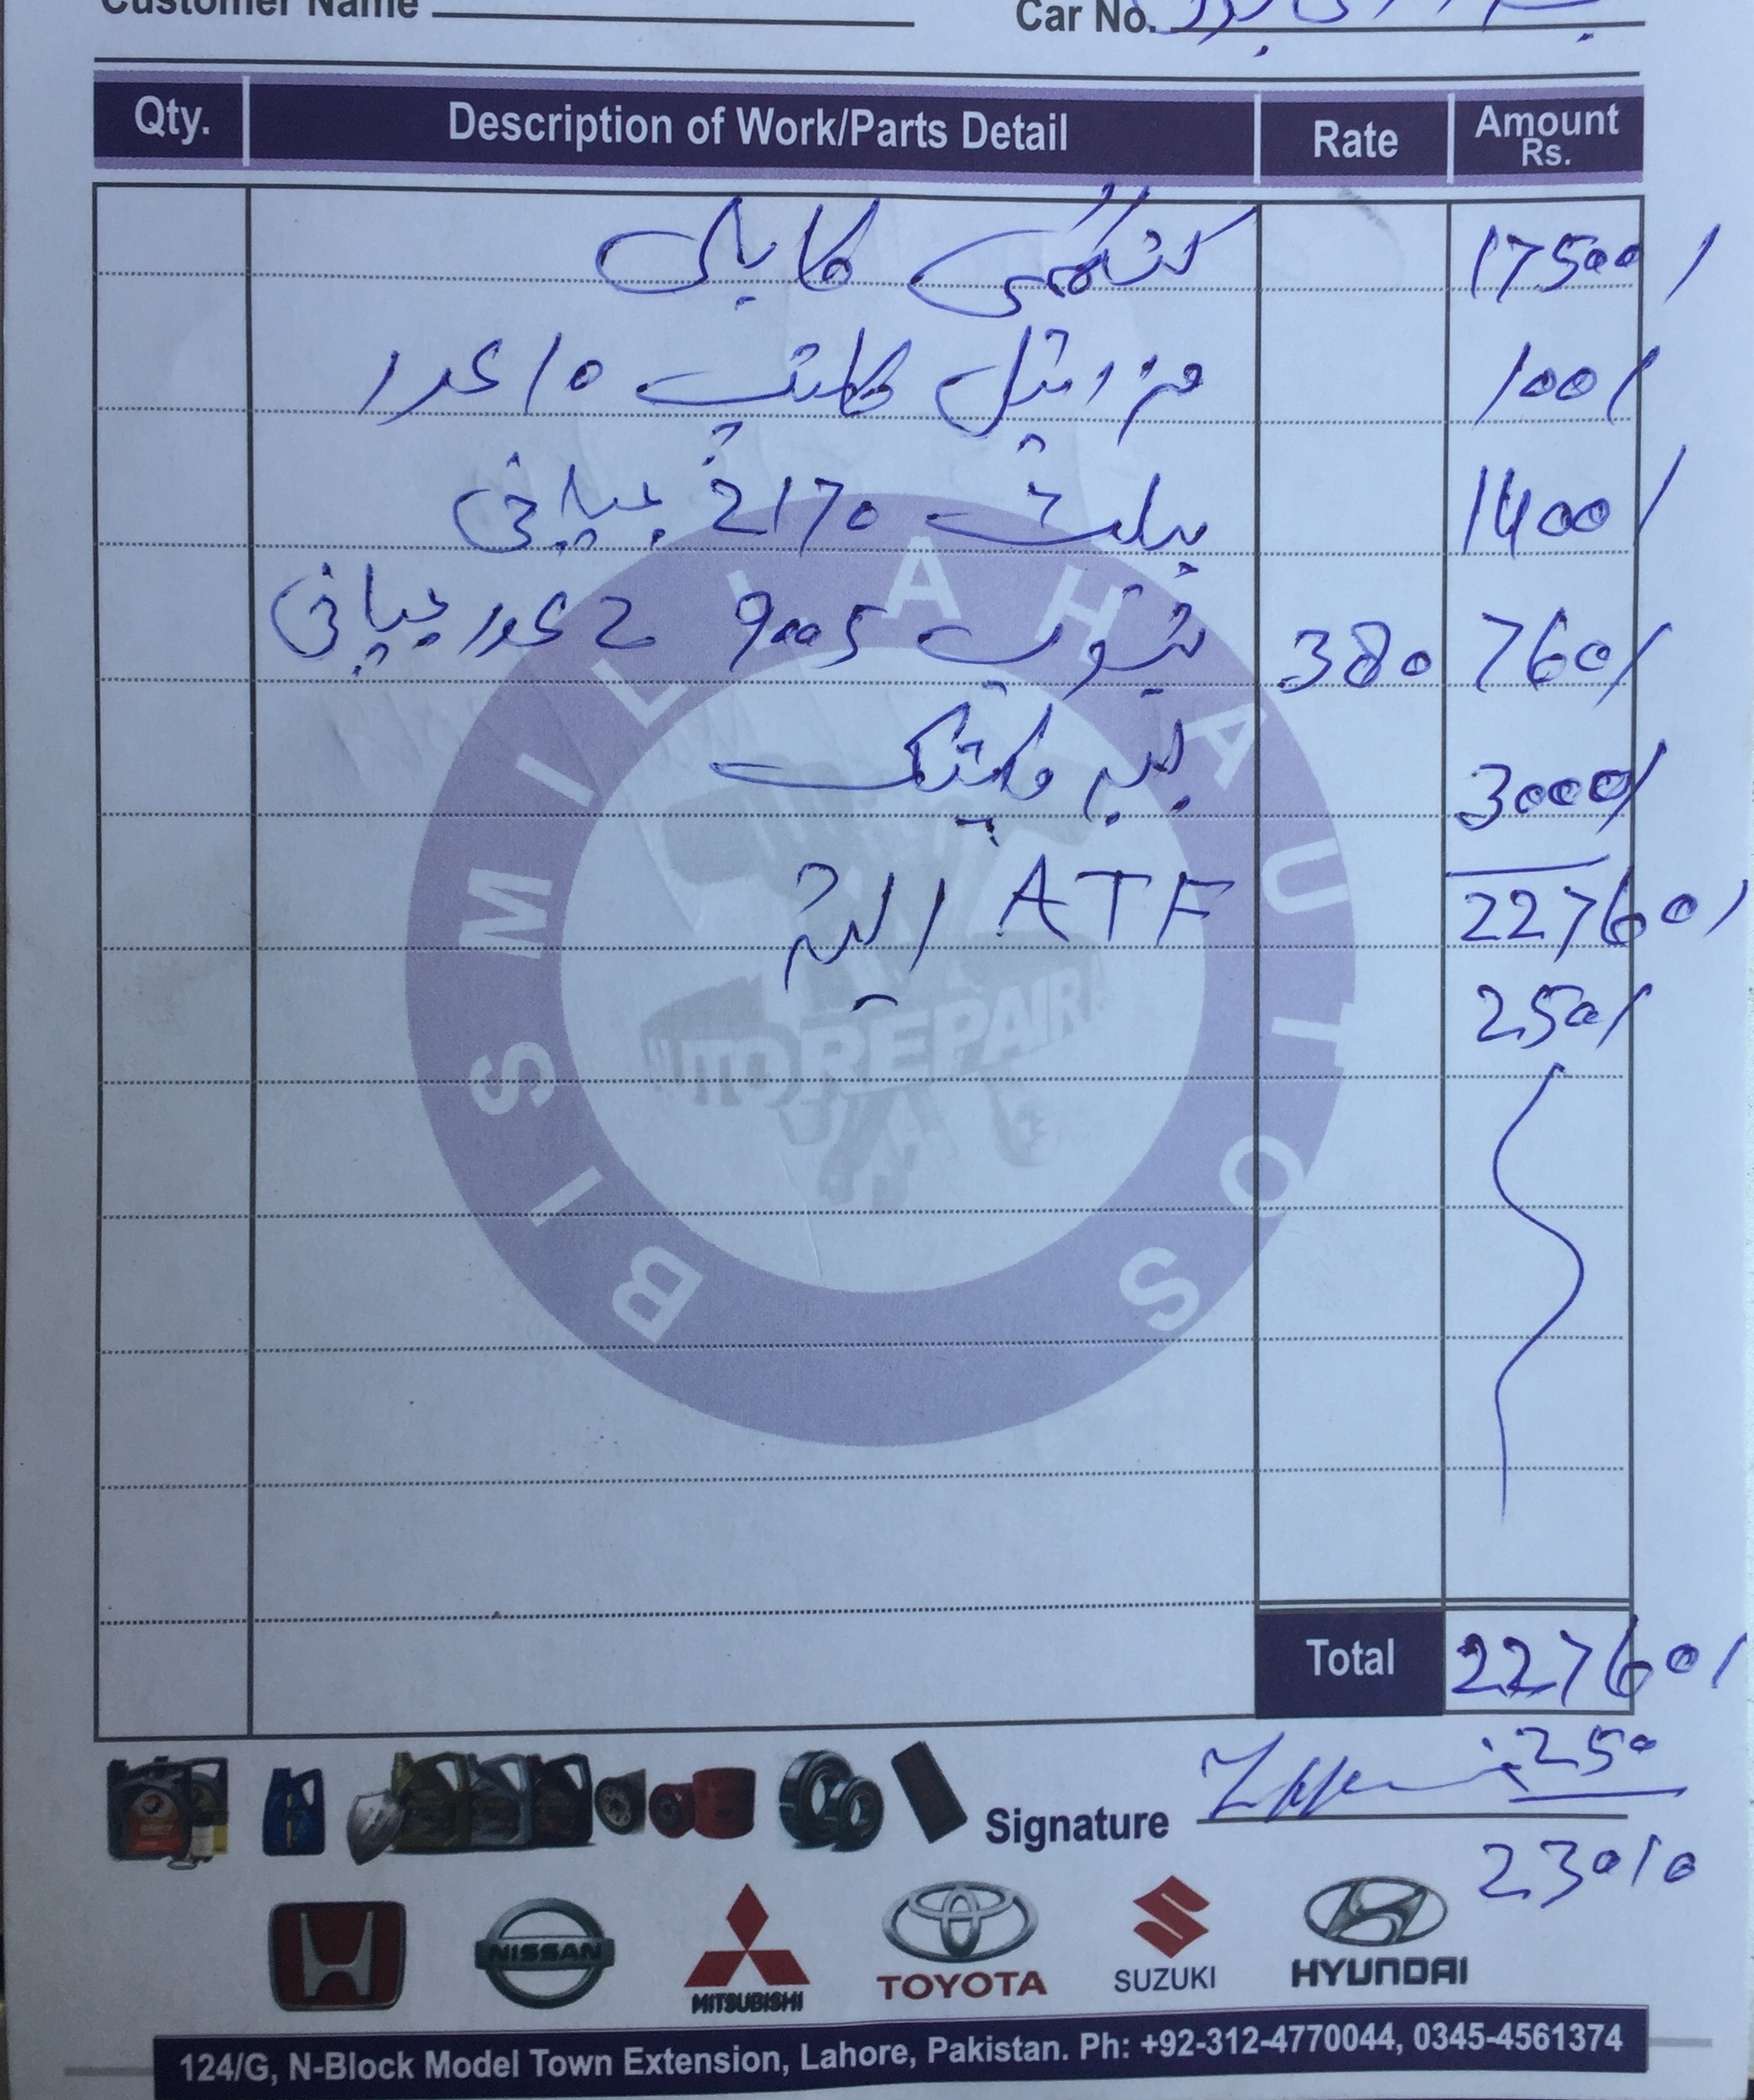 Customer Name
Car No.
Qty. Description of Work/Parts Detail Rate Amount Rs.
کابلی 17500/
کلپ 10 عدد 100/
بیلٹ 2170 جاپانی 1400/
ٹیوب 9005 2 عدد جاپانی 380 760/
3000/
22760/
ATF 250/
BISMILLAH AUTOS
AUTO REPAIR
Total 22760/
Signature 250
23010
NISSAN
MITSUBISHI
TOYOTA
SUZUKI
HYUNDAI
124/G, N-Block Model Town Extension, Lahore, Pakistan. Ph: +92-312-4770044, 0345-4561374